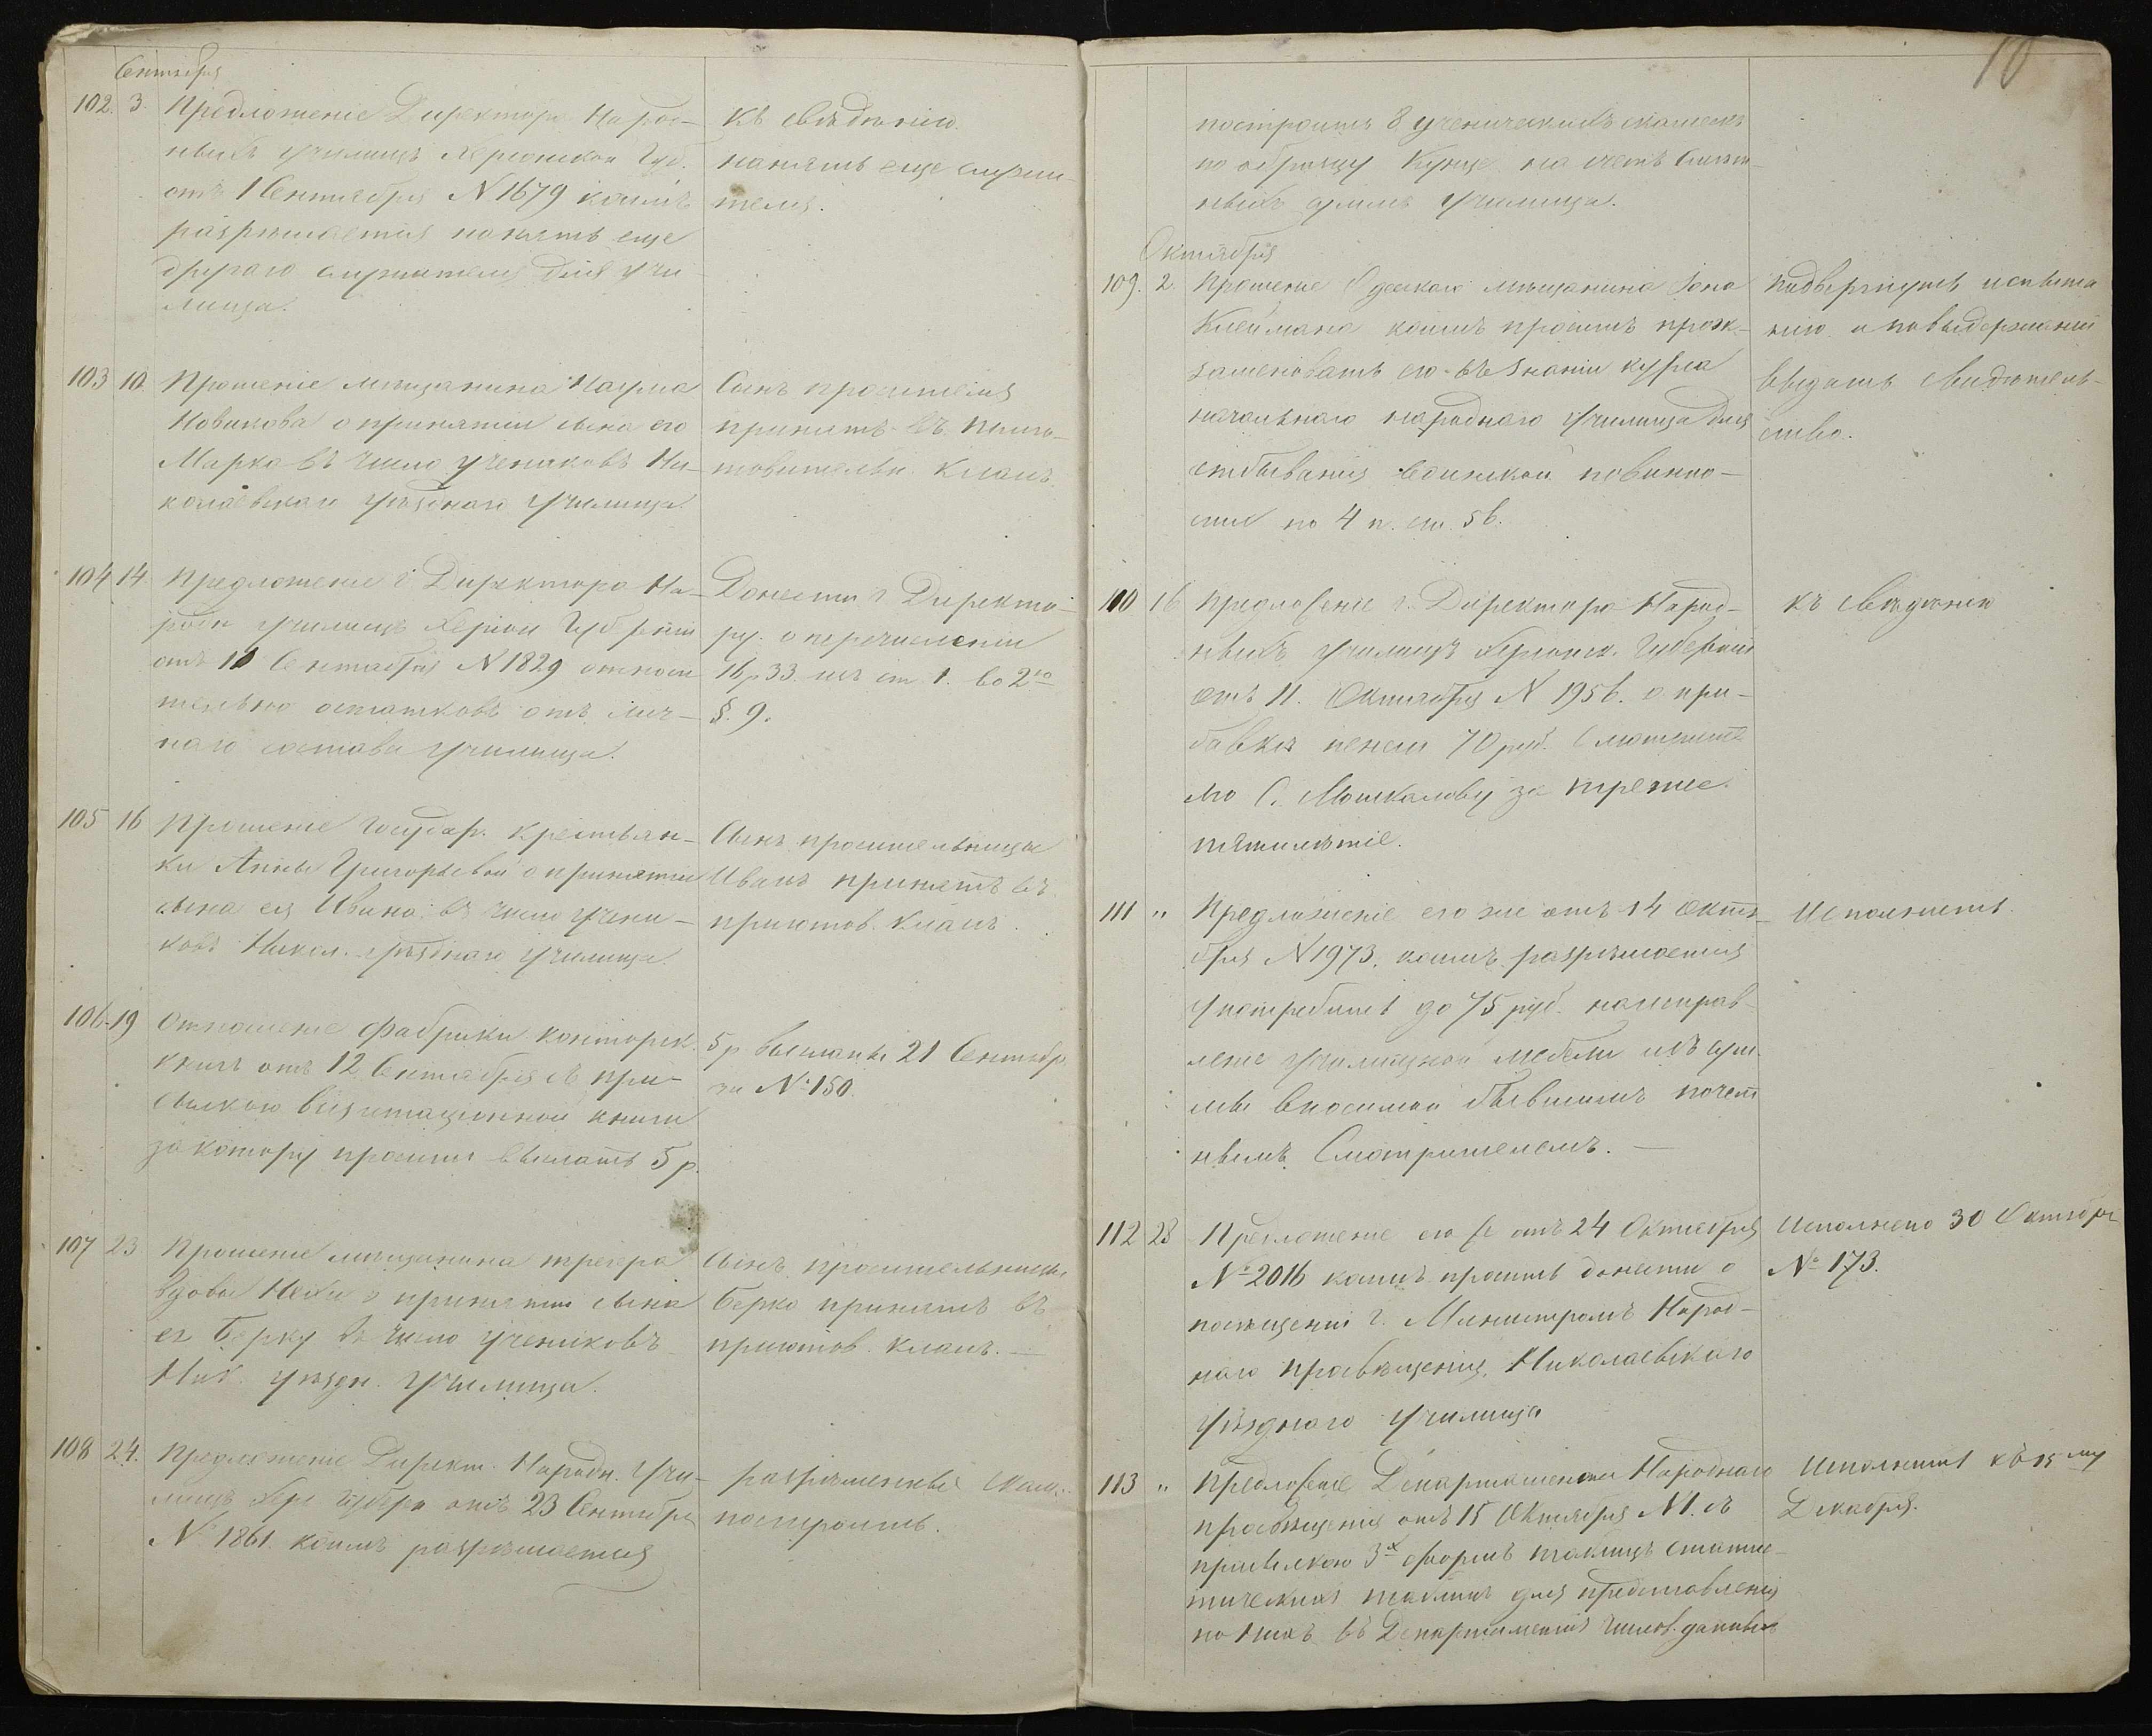 Сентября
102. 3. Предложеніе Директора Народ-
ныхъ училищъ Херсонской Губ.
отъ 1 Сентября N 1679 коимъ
разрѣшается нанять еще
другаго служителя для учи-
лища.
къ свѣдѣнію.
нанять еще служи-
теля.
103 10. Прошеніе мѣщанина Наума
Новикова о принятіи сына его
Марка въ число учениковъ Ни-
колаевскаго уѣзднаго училища.
Сынъ просителя
принятъ въ приго-
товительн. классъ.
104 14 Предложеніе г. Директора На-
родн училищъ Херсон Губерніи
отъ 11 Сентября N 1829 относи
тельно остатковъ отъ лич-
наго состава училища.
Донести г Директо-
ру о перечисленіи
16 р 33. изъ ст. 1. во 2ю
§. 9.
105 16 Прошеніе Государ. крестьян-
ки Анны Григорьевой о принятіи
сына ея Ивана въ число учени-
ковъ Никол. уѣзднаго училища.
Сынъ просительницы
Иванъ принятъ въ
приготов. классъ.
106 19 Отношеніе фабрики конторск.
книгъ отъ 12 Сентября съ при-
сылкою визитаціонной книги
за котору проситъ выслать 5 р.
5 р высланы 21 Сентябр.
за № 150.
107 23 Прошеніе мѣщанина
вдовы о принятіи сына
ея Берку въ число учениковъ
Ник. уѣздн. училища.
Сынъ просительницы
Берко принятъ въ
приготов. классъ. —
108 24. Предложеніе Директ. Народн. учи-
лищъ Хер Губерн отъ 23 Сентября
N 1861. коимъ разрѣшается
разрѣшенные скам.
построить.
10
построить 8 ученическихъ скамеекъ
по образцу Кунце на счетъ
ныхъ суммъ училища.
Октября
109. 2 Прошеніе Одесскаго мѣщанина
Клеймана коимъ проситъ проэк-
заменовать его въ знаніи курса
начальнаго народнаго училища для
отбыванія воинской повинно-
сти по 4 п. ст. 56.
подвергнуть испыта
нію и по выдержаніи
выдать свидѣтель-
ство.
110 16 Предложеніе г. Директора Народ-
ныхъ училищъ Херсонск. Губерніи
отъ 11. Октября N 1956. о при-
бавкѣ пенсіи 70 руб. Смотрите
лю С. Мошкалову за третье
пятилѣтіе.
къ свѣдѣнію
111 „ Предложеніе его же отъ 14 октя-
бря N 1973. коимъ разрѣшается
употребить до 75 руб. на исправ-
леніе училищной мебели изъ сум.
мы вносимой бывшимъ почет
нымъ Смотрителемъ. —
Исполнить.
112 28 Предложеніе его же отъ 24 Октября
№ 2016 коимъ проситъ донести о
посѣщеніи г. Министромъ Народ-
наго просвѣщенія, Николаевскаго
уѣзднаго училища
Исполнено 30 Октября
№ 173.
113 „ Предложеніе Департамента Народнаго
просвѣщенія отъ 15 Октября N 1. съ
присылкою 3х формъ таблицъ статис-
тическихъ таблицъ для представленія
по нихъ въ Департаментъ числов. данныхъ
Исполнить къ 15му
Декабря.